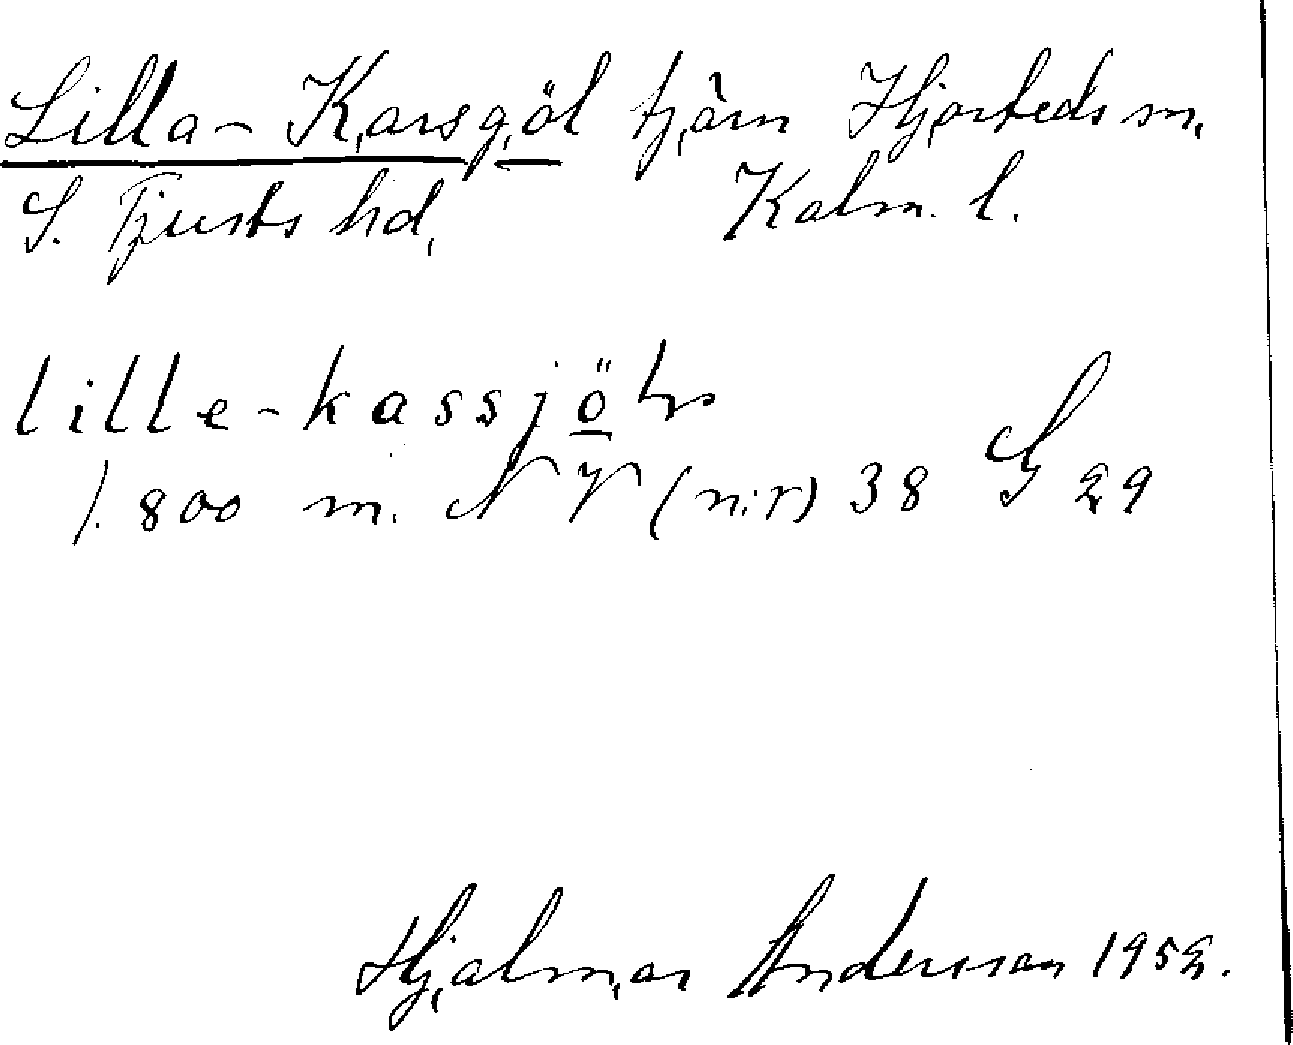 Lilla-Karsgöl tjärn Hjorteds sn.
S. Tjusts hd. Kalm. l.
lille-kassjö
1.800 m. N V (n:r) 38 G 29
Hjalmar Andersson 1952.